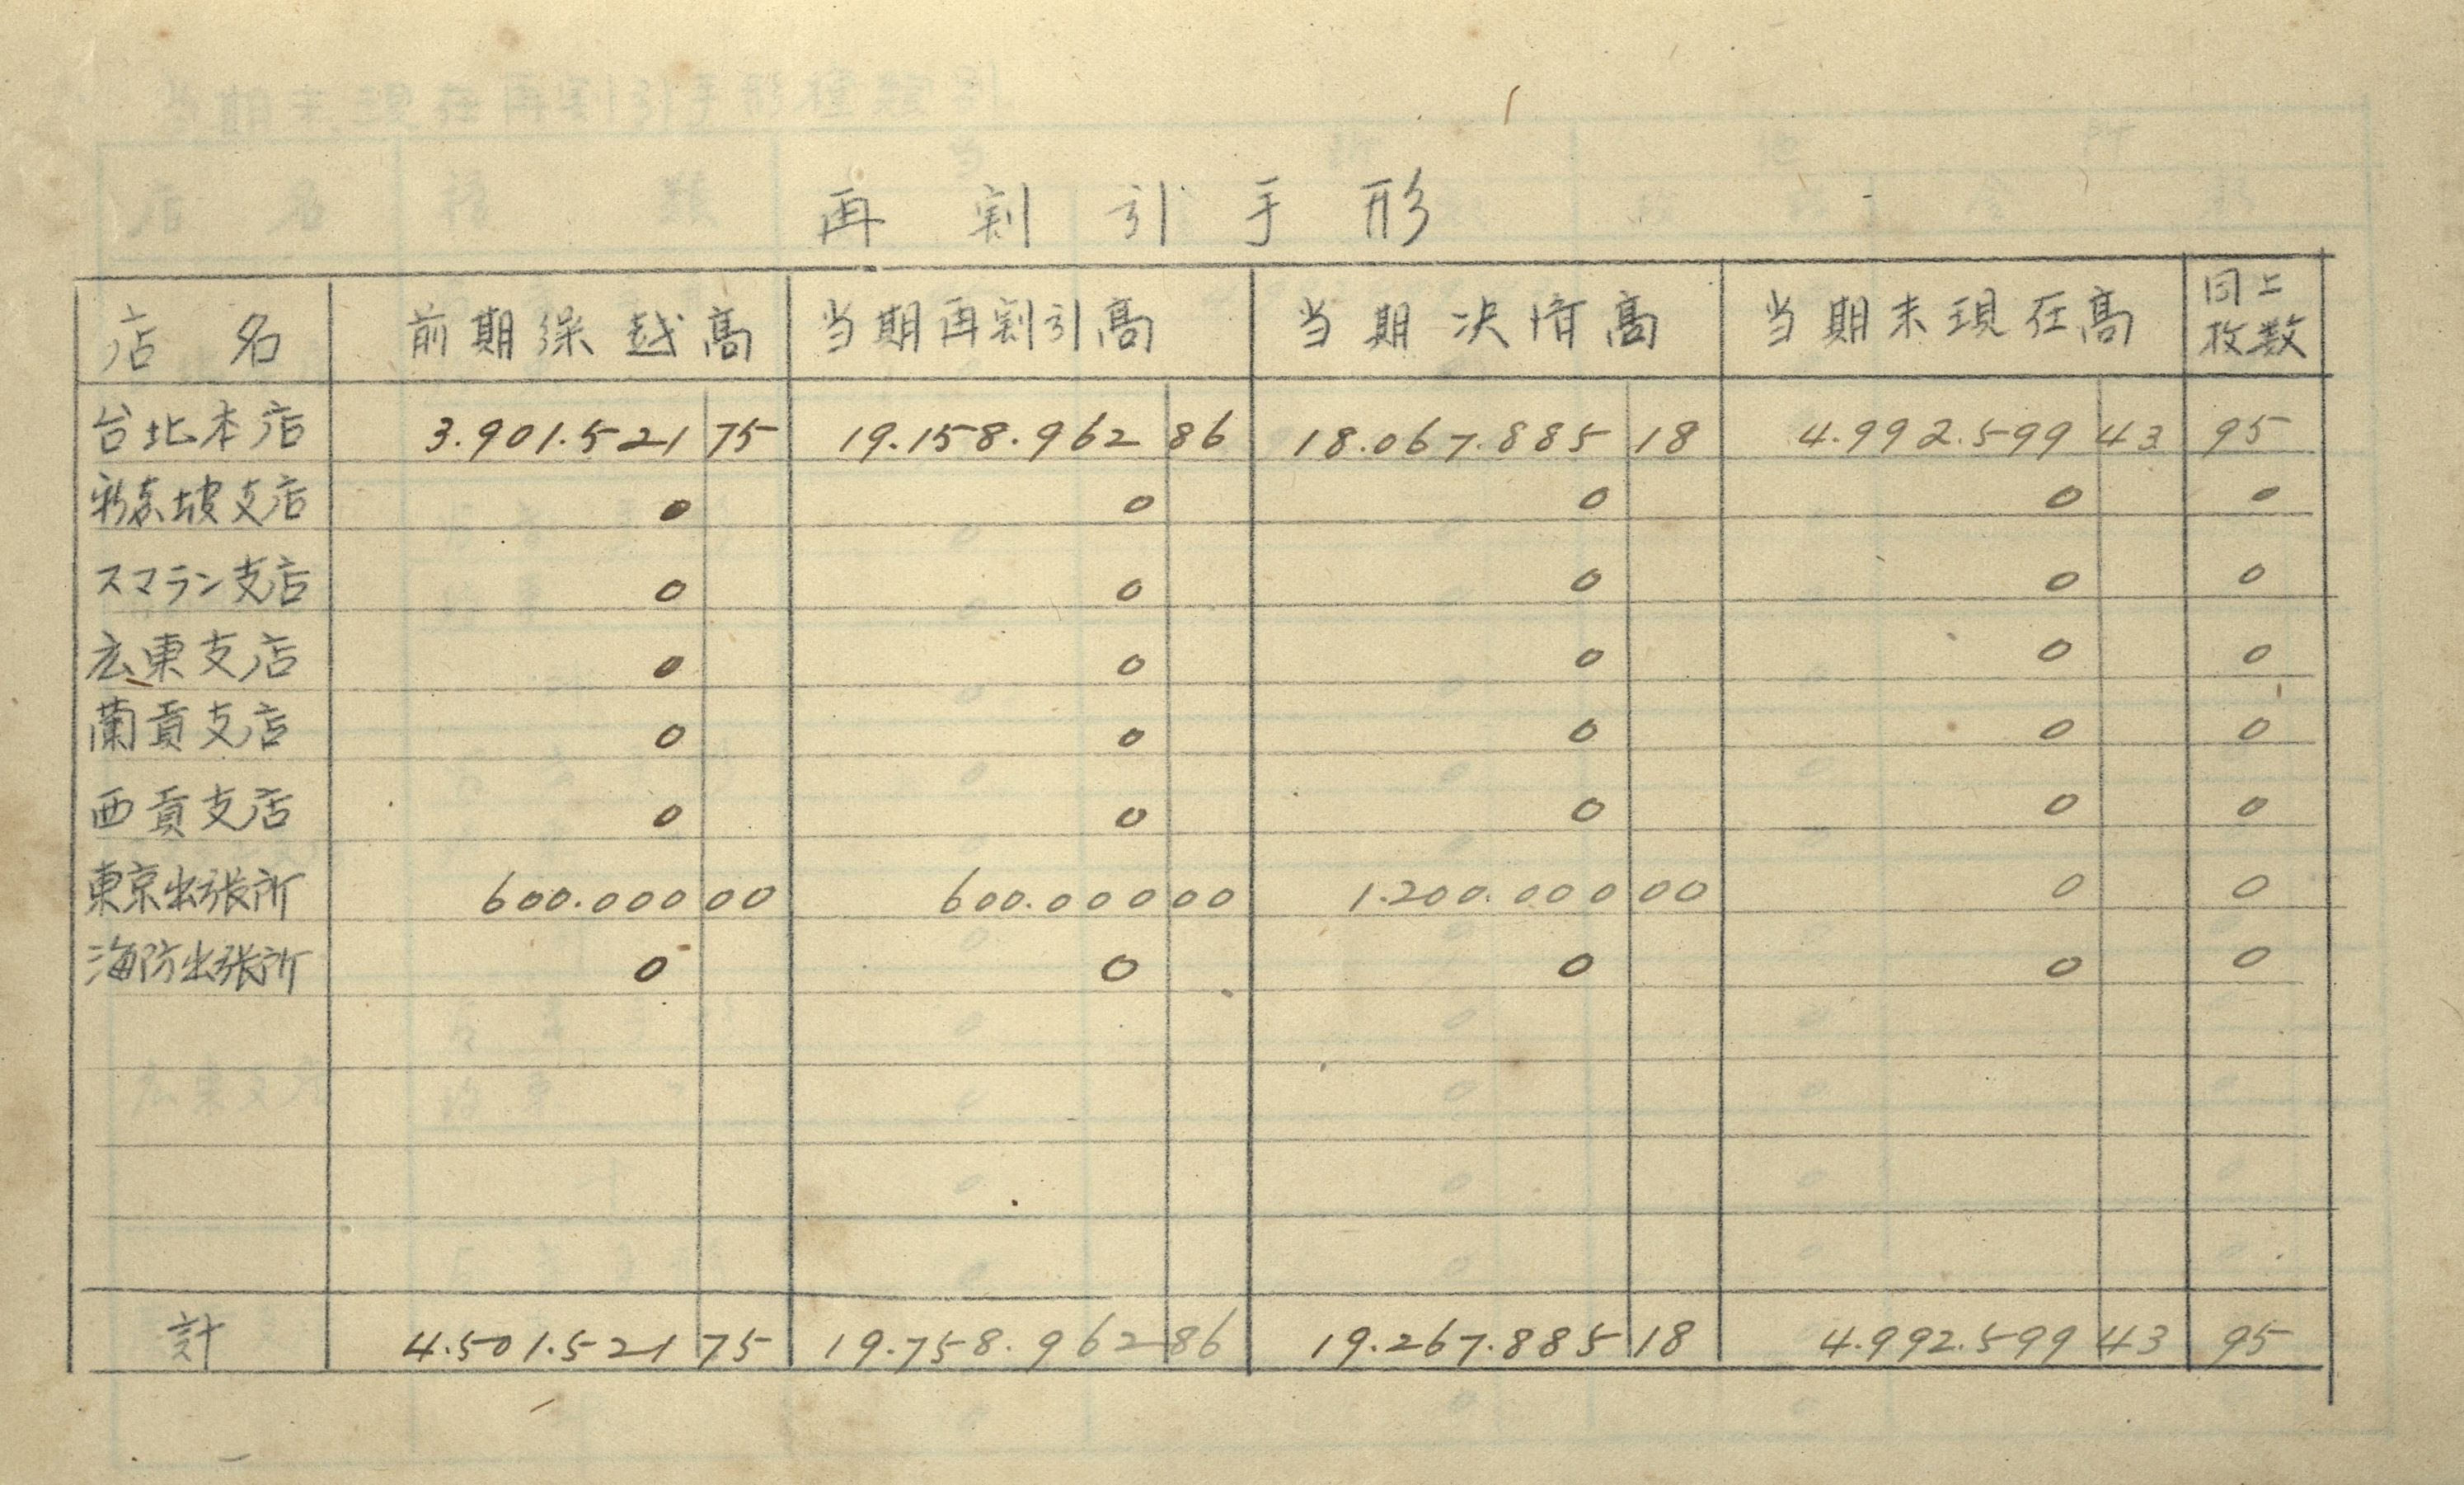 再割引手形
店名 前期繰越高 当期再割引高 当期決済高 当期末現在高 同上枚数
台北本店 3.901.521 75 19.158.962 86 18.067.885 18 4.992.599 43 95
新嘉坡支店 0 0 0 0 0
スマラン支店 0 0 0 0 0
広東支店 0 0 0 0 0
蘭貢支店 0 0 0 0 0
西貢支店 0 0 0 0 0
東京出張所 600.000 00 600.000 00 1.200.000 00 0 0
海防出張所 0 0 0 0 0
計 4.501.521 75 19.758.962 86 19.267.885 18 4.992.599 43 95